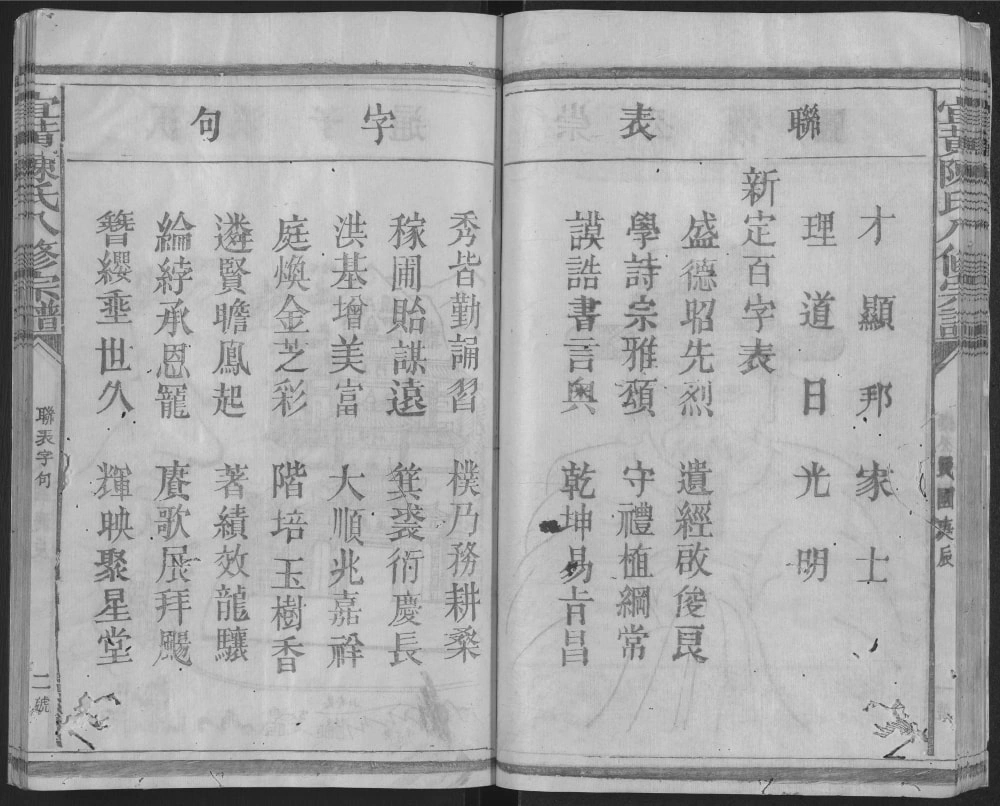 宜黃陳氏八修宗譜
民國庚辰
聯表字句
才顯邦家士
理道日光明
新定百字表
盛德昭先烈 遺經啟俊良
學詩宗雅頌 守禮植綱常
謨誥書言奧 乾坤易肯昌
秀皆勤誦習 樸乃務耕桑
稼圃貽謀遠 箕裘衍慶長
洪基增美富 大順兆嘉祥
庭煥金芝彩 階培玉樹香
遴賢瞻鳳起 著績效龍驤
綸綍承恩寵 賡歌展拜颺
簪纓垂世久 輝映聚星堂
宜黃陳氏八修宗譜
聯表字句
二號